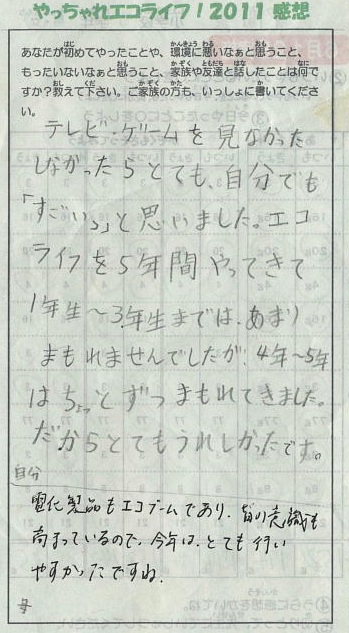 やっちゃれエコライフ!2011 感想
あなたが初めてやったことや、環境に悪いなぁと思うこと、
もったいないなぁと思うこと、家族や友達と話したことは何で
すか?教えて下さい。ご家族の方も、いっしょに書いてくださ
い。
テレビ・ゲームを見なかった
しなかったらとても、自分でも
「すごいっ」と思いました。エコ
ライフを5年間やってきて
1年生〜3年生までは、あまり
まもれませんでしたが、4年〜5年
はちょっとずつまもれてきました。
だからとてもうれしかったです。
自分
電化製品もエコブームであり、皆の意識も
高まっているので、今年は、とても行い
やすかったですね。
母